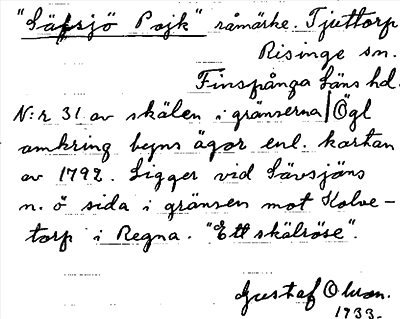 "Säfsjö Pojk" råmärke. Tjuttorp
Risinge sn.
Finspånga läns hd.
N:r 31 av skälen i gränserna Ögl
omkring byns ägor enl. kartan
av 1792. Ligger vid Sävsjöns
n. ö sida i gränsen mot Kolve-
torp i Regna. "Ett skälröse".
Gustaf
1933.